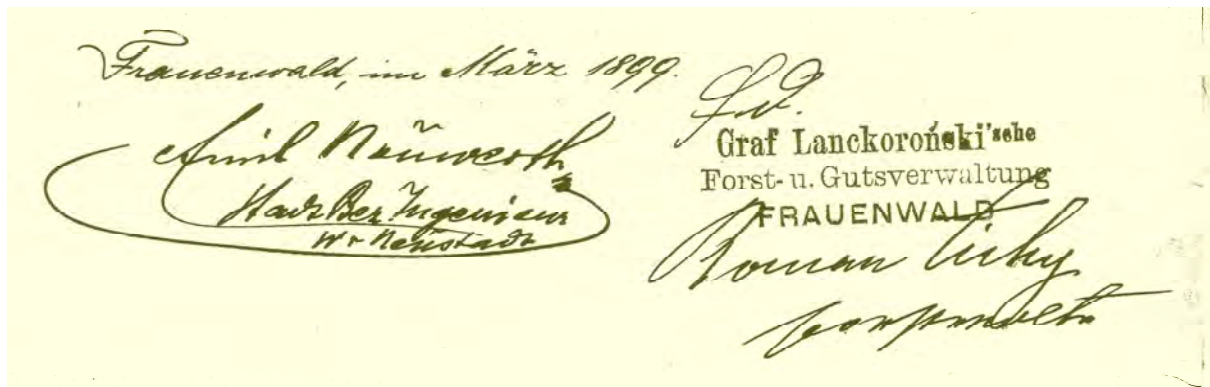 Frauenwald, im März 1899.
Emil Neuwerth
Stadt Bez Ingenieur
Wr Neustadt
Graf Lanckoroński'sche
Forst- u. Gutsverwaltung
FRAUENWALD
Roman Tichy
Forstverwalter